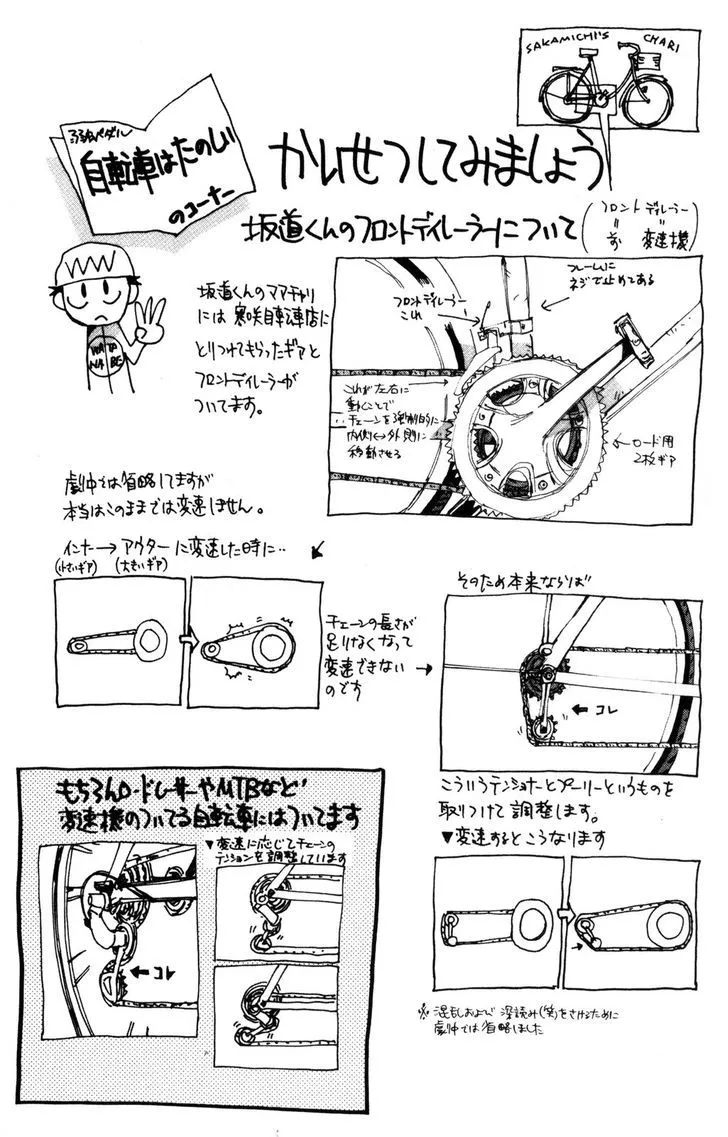 SAKAMICHI'S CHARI
弱虫ペダル
自転車はたのしい
のコーナー
かいせつしてみましょう
坂道くんのフロントディレーラーについて
フロント ディレーラー
〃 〃
前 変速機
WATA
NABE
坂道くんのママチャリ
には 寒咲自転車店に
とりつけてもらったギアと
フロントディレーラーが
ついてます。
フロントディレーラー
これ
フレームに
ネジで止めてある
これが左右に
動くことで
チェーンを強制的に
内側↔外側に
移動させる
ロード用
2枚ギア
劇中では省略してますが
本当はこのままでは変速しません。
インナー→アウターに変速した時に‥
(小さいギア) (大きいギア)
チェーンの長さが
足りなくなって
変速できない
のです
→
そのため本来ならば
← コレ
こういうテンショナーとプーリーというものを
取りつけて調整します。
▼変速するとこうなります
※混乱および 深読み(笑)をさけるために
劇中では省略しました
もちろんロードレーサーやMTBなど
変速機のついてる自転車にはついてます
▼変速に応じてチェーンの
テンションを調整しています
← コレ